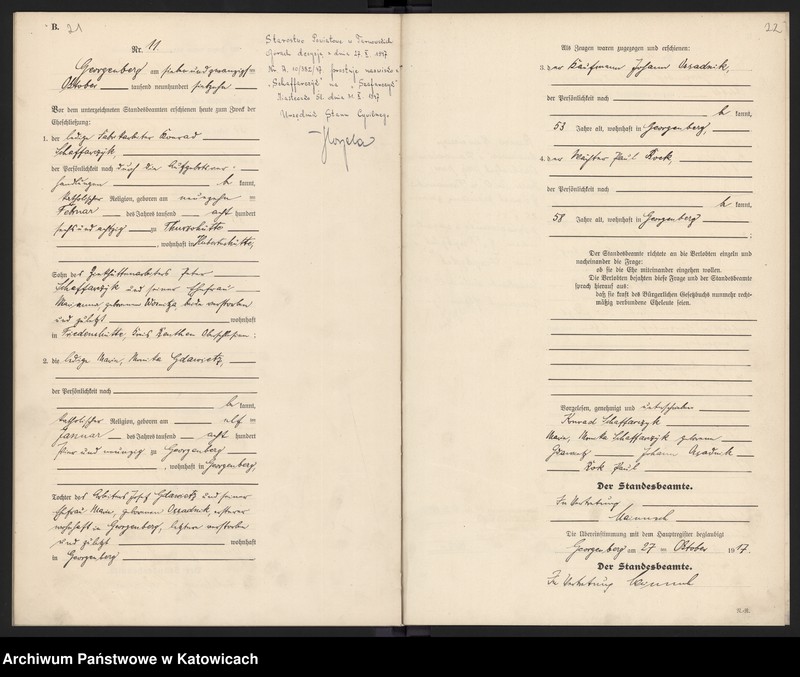 B. 21
Nr. 11
Georgenberg am siebenundzwanzigsten
Oktober tausend neunhundert siebzehn
Vor dem unterzeichneten Standesbeamten erschienen heute zum Zweck der
Eheschließung:
1. der ledige Konrad
Schaffarczyk,
der Persönlichkeit nach durch die Aufgebotsver-
handlungen be kannt,
katholischer Religion, geboren am neunzehn ten
Februar des Jahres tausend acht hundert
sechsundachtzig zu Thurzohütte
, wohnhaft in Hubertushütte,
Sohn des Zinkhüttenarbeiters Peter
Schaffarczyk und seiner Ehefrau
Marianna, geborenen beide verstorben
und zuletzt wohnhaft
in Friedenshütte, Kreis Beuthen Oberschlesien;
2. die ledige Marie, Monika Gdawietz,
der Persönlichkeit nach
be kannt,
katholischer Religion, geboren am elf ten
Januar des Jahres tausend acht hundert
und neunzig zu Georgenberg
, wohnhaft in Georgenberg,
Tochter des Arbeiters Josef Gdawietz und seiner
Ehefrau Marie, geborenen Ossadnik, ersterer
wohnhaft in Georgenberg, letztere verstorben
und zuletzt wohnhaft
in Georgenberg
Starostwo Powiatowe w Tarnowskich
Górach decyzją z dnia 27. X. 1947
prostuje nazwisko
"Schaffarczyk" na "Szafarczyk"
dnia 1947
Urzędnik Stanu Cywilnego.
22
Als Zeugen waren zugezogen und erschienen:
3. der Kaufmann Johann Ossadnik,
der Persönlichkeit nach
be kannt,
53 Jahre alt, wohnhaft in Georgenberg,
4. der Wächter Paul Rock,
der Persönlichkeit nach
be kannt,
58 Jahre alt, wohnhaft in Georgenberg
Der Standesbeamte richtete an die Verlobten einzeln und
nacheinander die Frage:
ob sie die Ehe miteinander eingehen wollen.
Die Verlobten bejahten diese Frage und der Standesbeamte
sprach hierauf aus:
daß sie kraft des Bürgerlichen Gesetzbuchs nunmehr recht-
mäßig verbundene Eheleute seien.
Vorgelesen, genehmigt und unterschrieben
Konrad Schaffarczyk
Marie, Monika Schaffarczyk geborene
Johann Osadnik
Rok Paul
Der Standesbeamte.
In Vertretung
Die Übereinstimmung mit dem Hauptregister beglaubigt
Georgenberg am 27 ten Oktober 1917.
Der Standesbeamte.
In Vertretung
Archiwum Państwowe w Katowicach